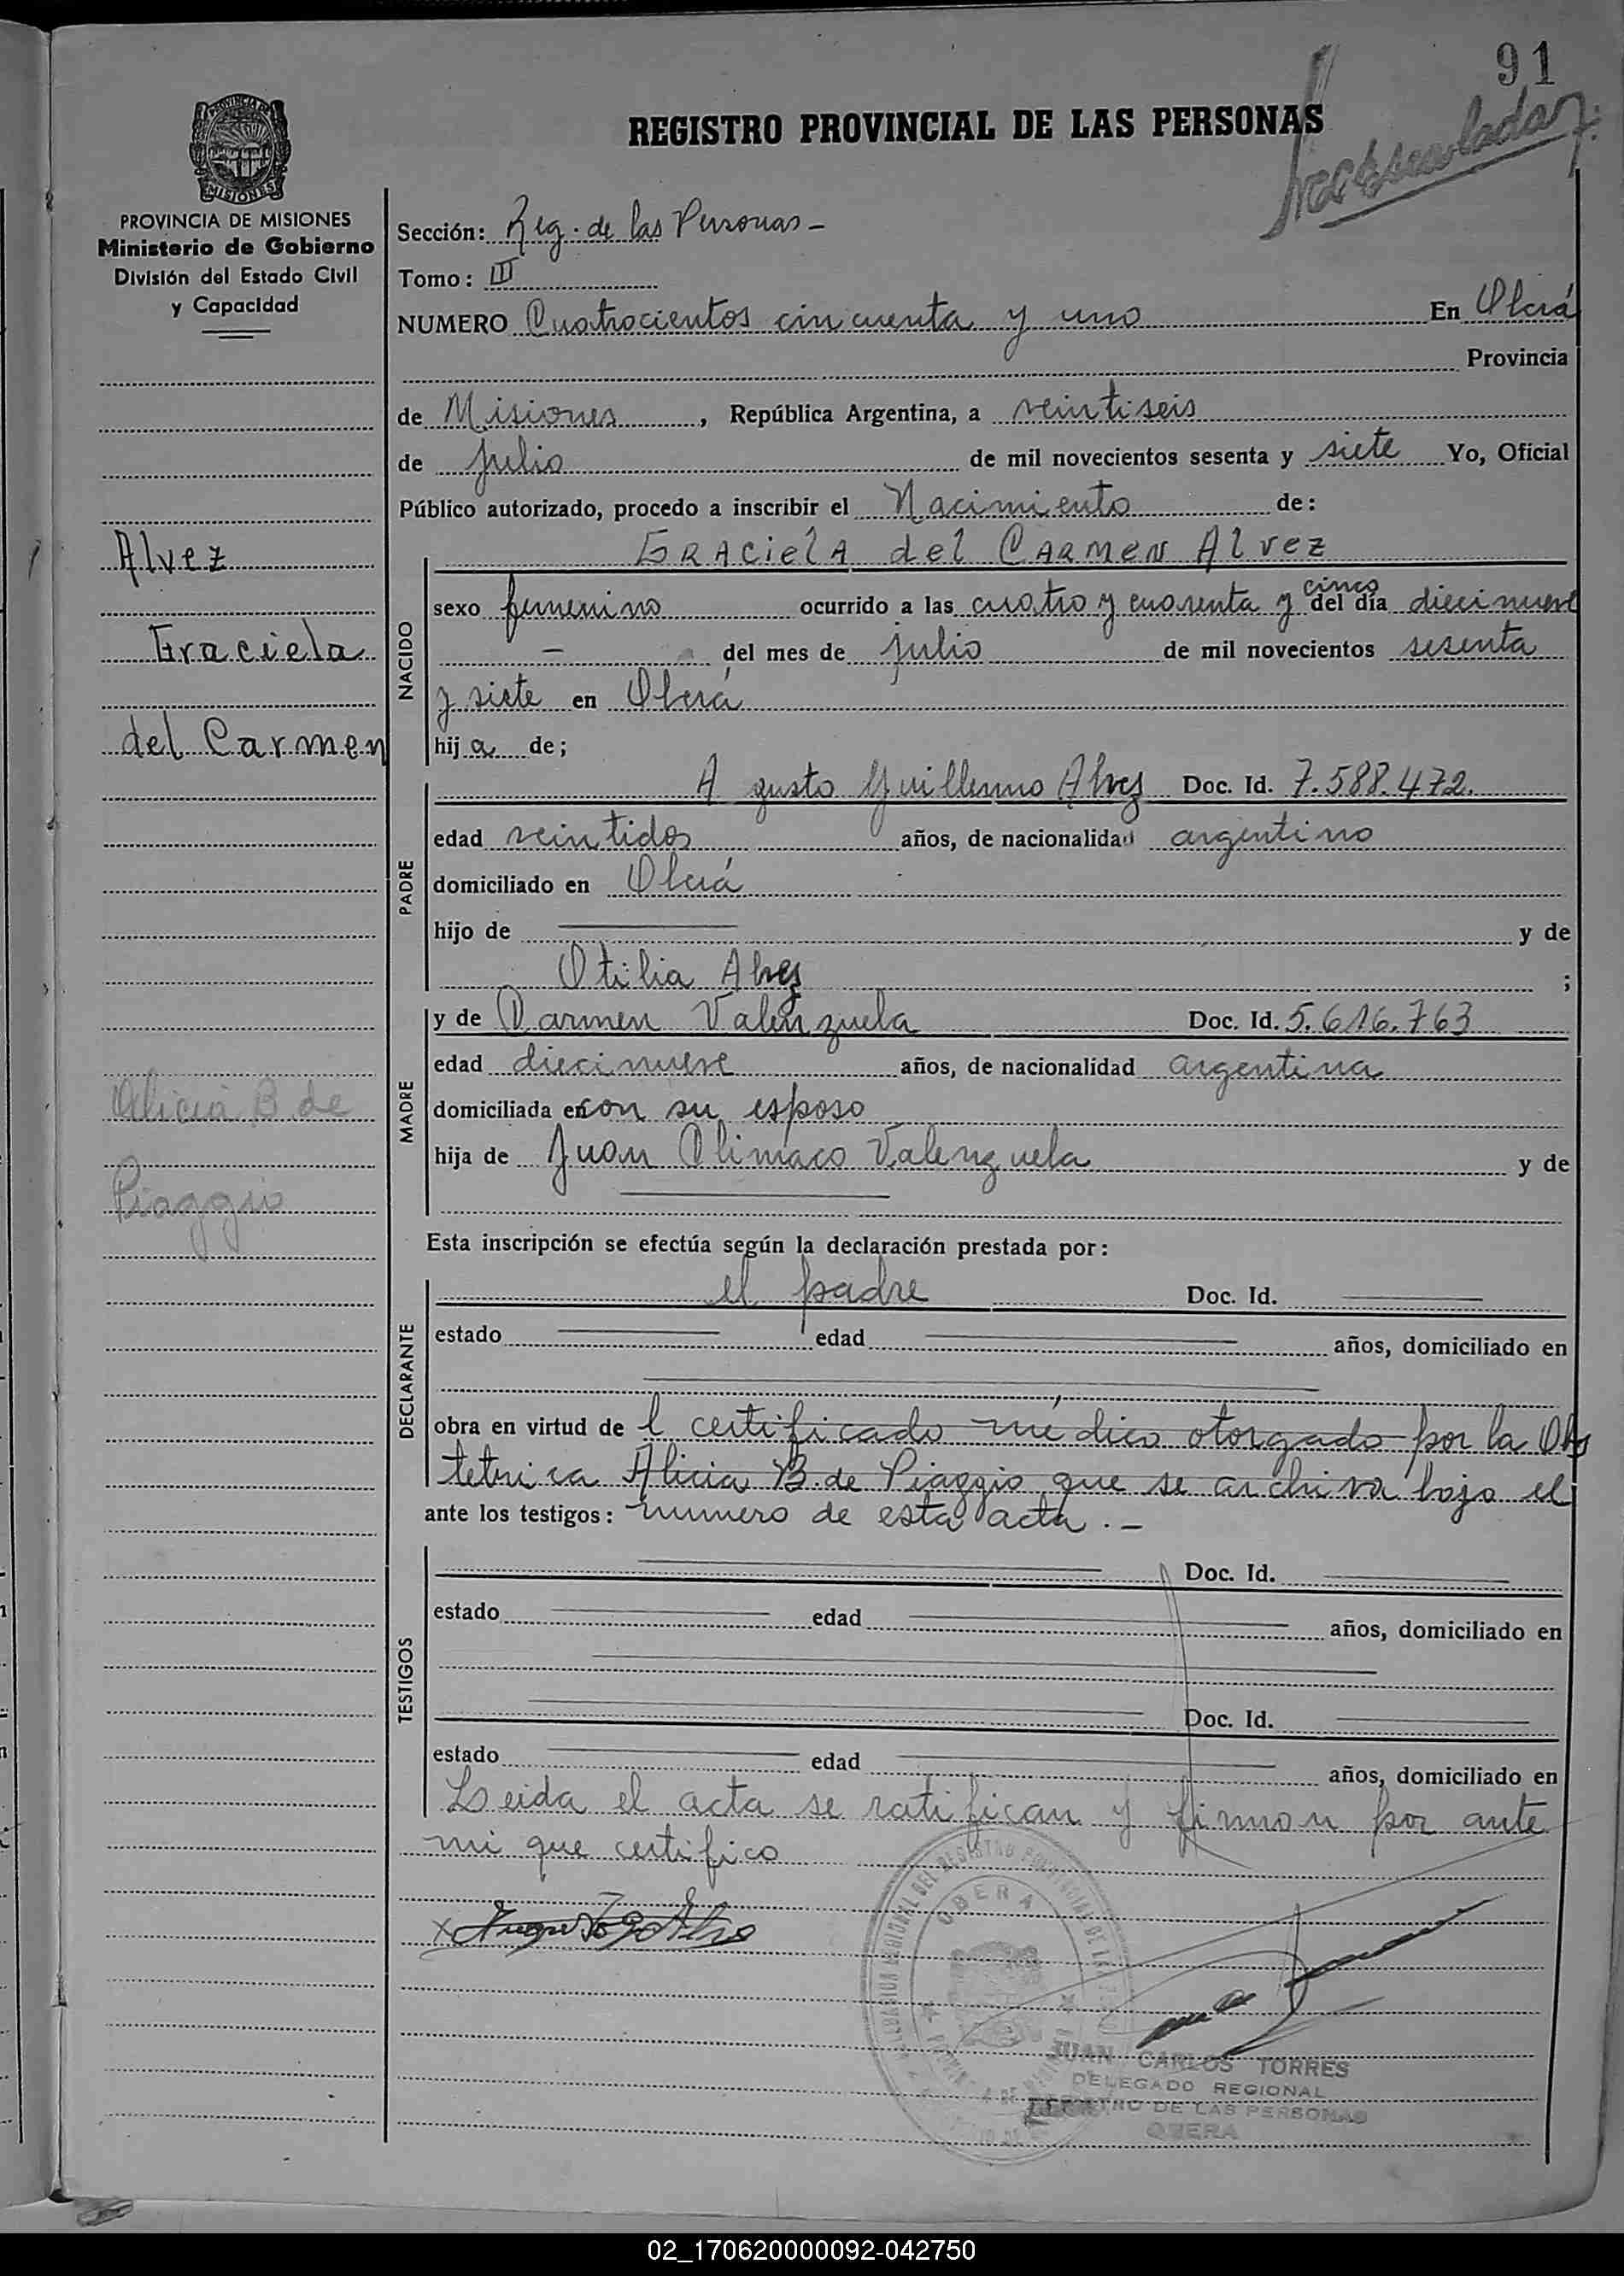 91
REGISTRO PROVINCIAL DE LAS PERSONAS
PROVINCIA DE MISIONES
Ministerio de Gobierno
División del Estado Civil
y Capacidad
Sección: Reg. de las Personas -
Tomo: III
NUMERO Cuatrocientos cincuenta y uno En Oberá
Provincia
de Misiones, República Argentina, a veintiseis
de julio de mil novecientos sesenta y siete Yo, Oficial
Público autorizado, procedo a inscribir el Nacimiento de:
Alvez
Graciela
del Carmen
GRACIELA del CARMEN Alvez
NACIDO
sexo femenino ocurrido a las cuatro y cuarenta y cinco del día diecinueve
- del mes de julio de mil novecientos sesenta
y siete en Oberá
hija de;
PADRE
A gusto Guillermo Alvez Doc. Id. 7.588.472.
edad veintidos años, de nacionalidad argentino
domiciliado en Oberá
hijo de y de
Otilia Alvez ;
MADRE
y de Carmen Valenzuela Doc. Id. 5.616.763
edad diecinueve años, de nacionalidad argentina
domiciliada en con su esposo
hija de Juan Climaco Valenzuela y de
Alicia B. de
Piaggio
Esta inscripción se efectúa según la declaración prestada por:
DECLARANTE
el padre Doc. Id.
estado edad años, domiciliado en
obra en virtud de l certificado médico otorgado por la Obs
tetrica Alicia B. de Piaggio que se archiva bajo el
ante los testigos: numero de esta acta . -
TESTIGOS
Doc. Id.
estado edad años, domiciliado en
Doc. Id.
estado edad años, domiciliado en
Leida el acta se ratifican y firman por ante
mi que certifico
OBERA
JUAN CARLOS TORRES
DELEGADO REGIONAL
REGISTRO DE LAS PERSONAS
OBERA
02_170620000092-042750